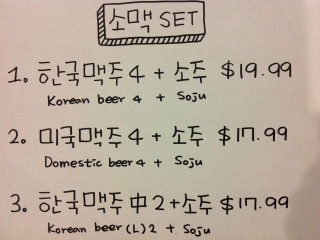 소맥 SET
1. 한국맥주 4 + 소주 $19.99
Korean beer 4 + Soju
2. 미국맥주 4 + 소주 $17.99
Domestic beer 4 + Soju
3. 한국맥주 中 2 + 소주 $17.99
Korean beer (L) 2 + Soju